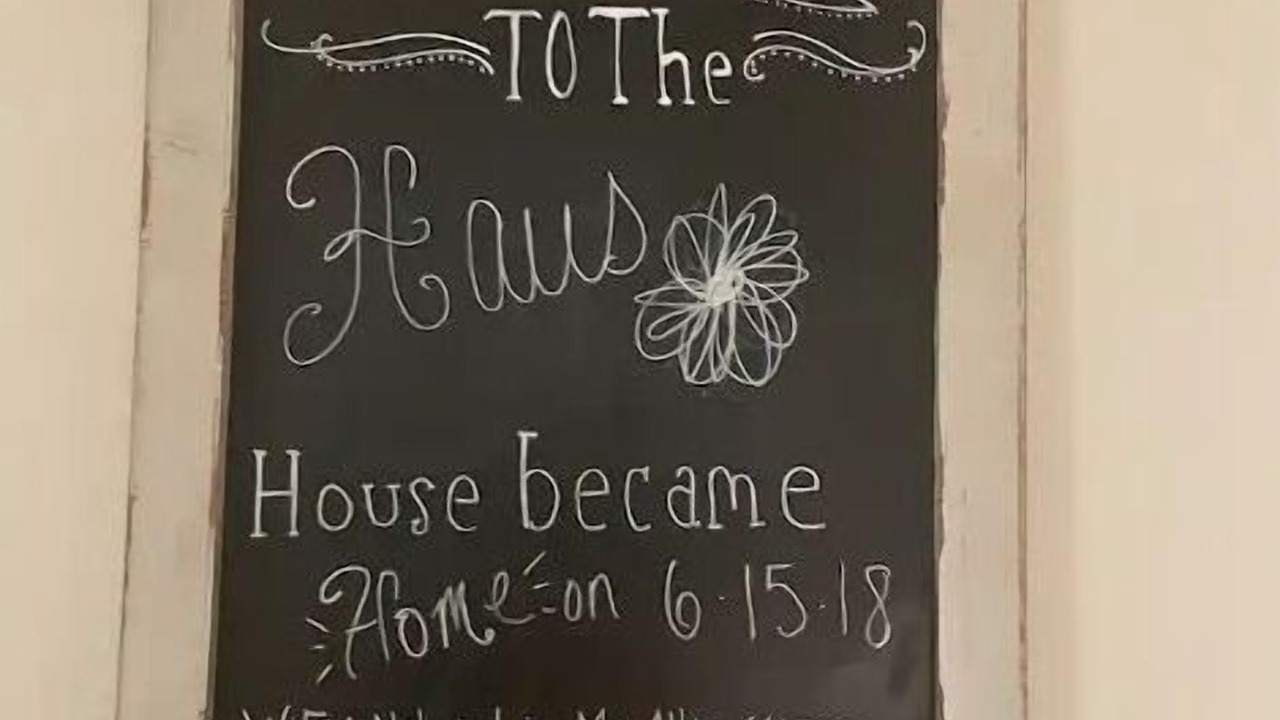 TO The
Haus
House became
Home on 6·15·18